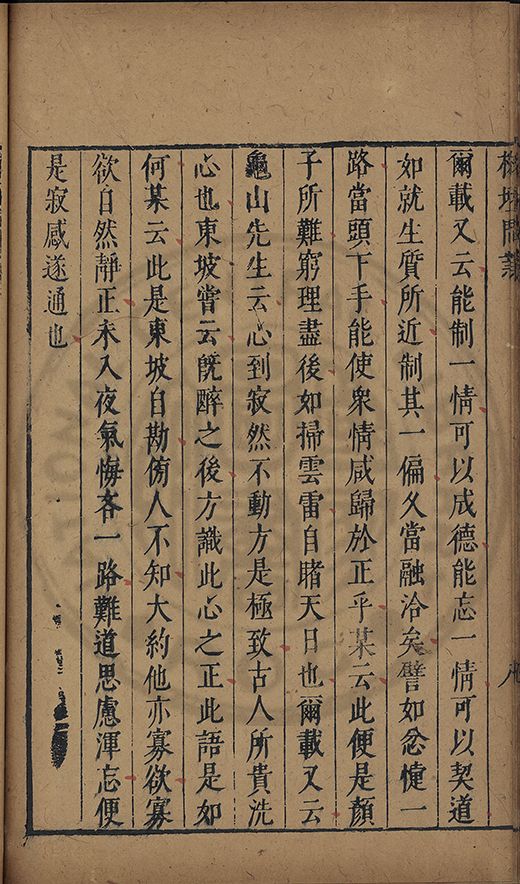 榕壇問業
爾載又云能制一情可以成德能忘一情可以契道
如就生質所近制其一偏久當融洽矣譬如忿懥一
路當頭下手能使衆情咸歸於正乎某云此便是顏
子所難窮理盡後如掃雲雷自睹天日也爾載又云
龜山先生云心到寂然不動方是極致古人所貴洗
心也東坡嘗云旣醉之後方識此心之正此語是如
何某云此是東坡自勘傍人不知大約他亦寡欲寡
欲自然靜正未入夜氣悔吝一路難道思慮渾忘便
是寂感遂通也